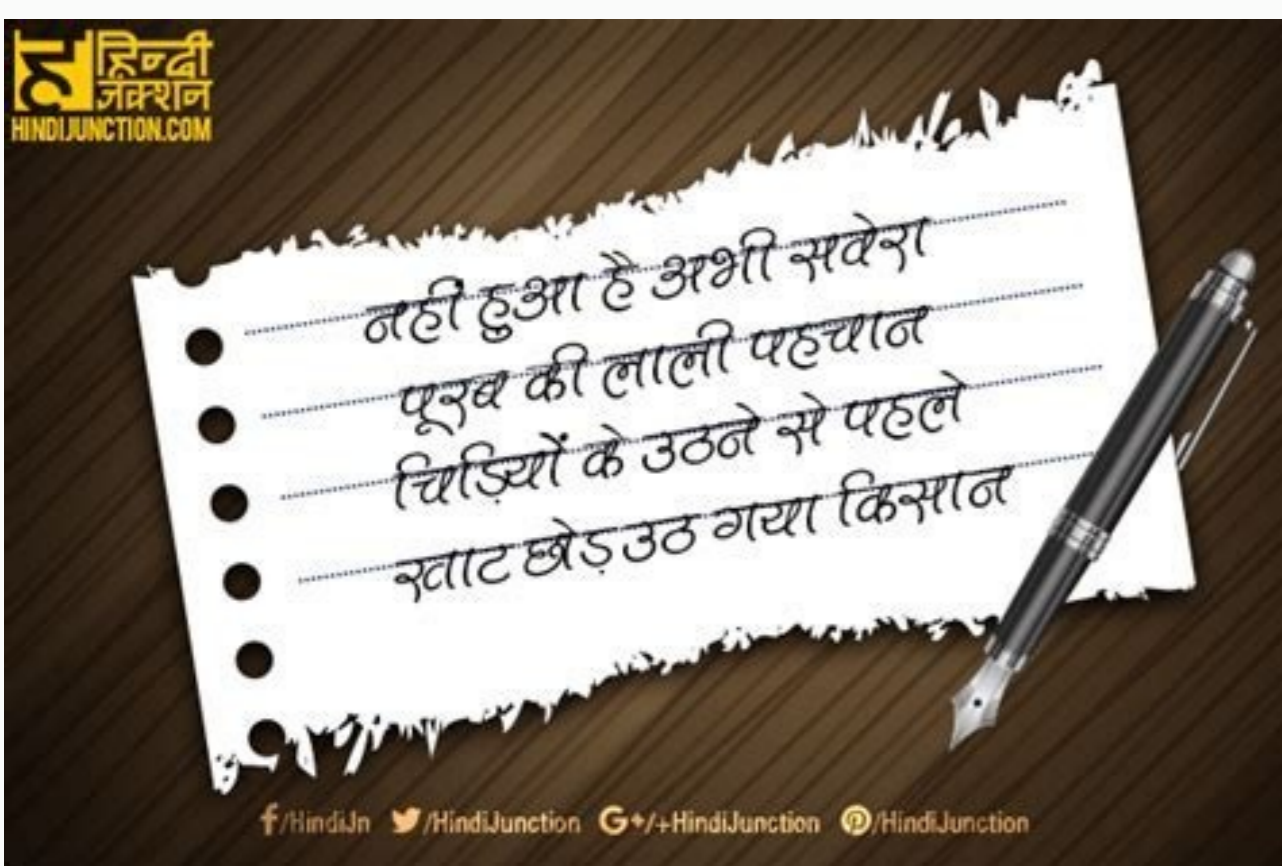 ह हिन्दी
जंक्शन
HINDIJUNCTION.COM
नहीं हुआ है अभी सवेरा
पूरब की लाली पहचान
चिड़ियों के उठने से पहले
खाट छोड़ उठ गया किसान
f/HindiJn /HindiJunction G+/+HindiJunction /HindiJunction